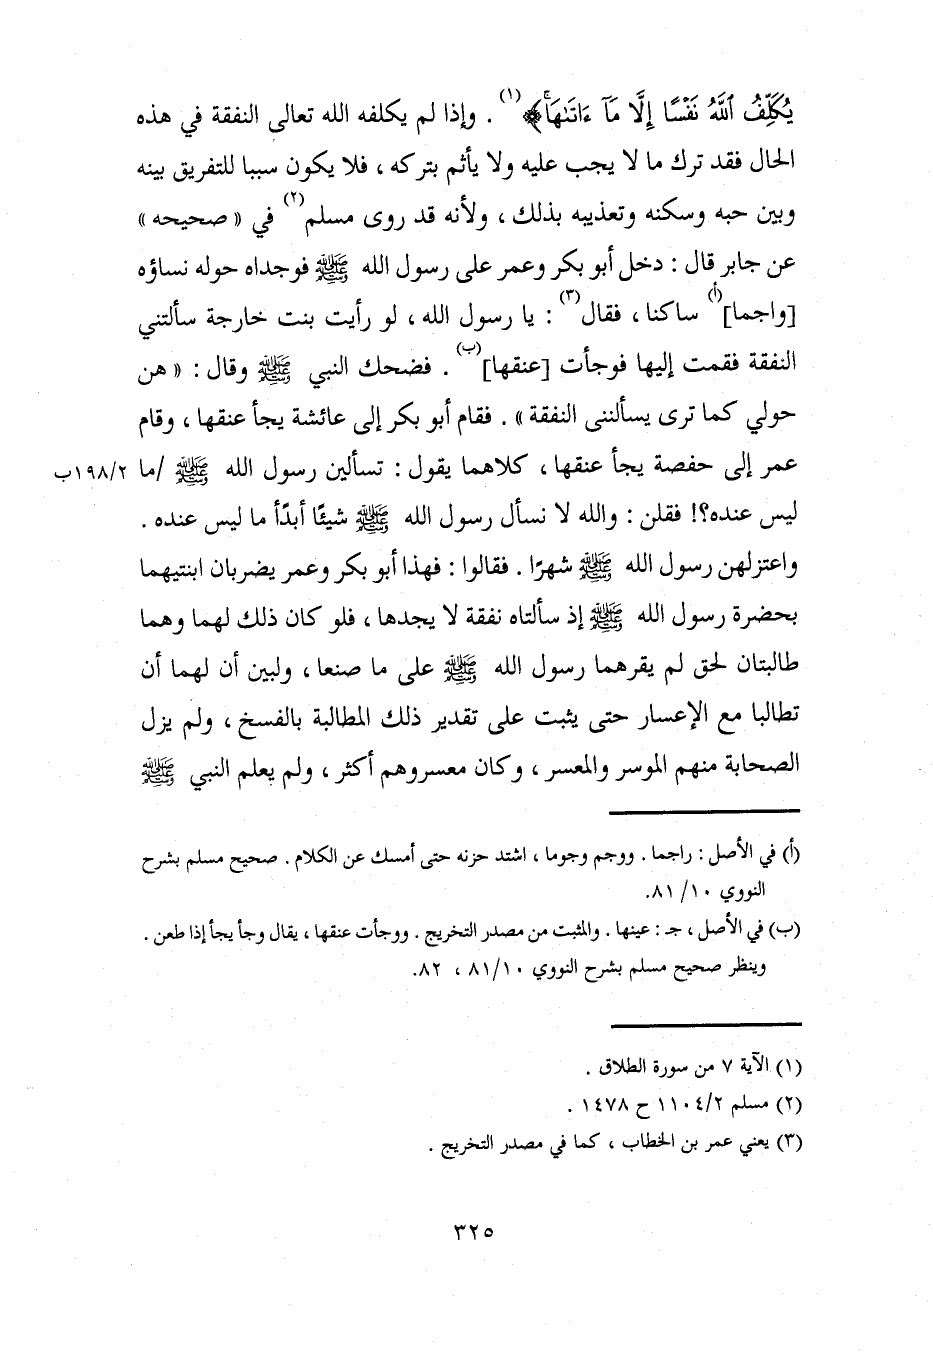 يُكَلِّفُ ٱللَّهُ نَفْسًا إِلَّا مَآ ءَاتَىٰهَاۚ﴾(١) . وإذا لم يكلفه الله تعالى النفقة في هذه
الحال فقد ترك ما لا يجب عليه ولا يأثم بتركه ، فلا يكون سببا للتفريق بينه
وبين حبه وسكنه وتعذيبه بذلك ، ولأنه قد روى مسلم(٢) في « صحيحه »
عن جابر قال : دخل أبو بكر وعمر على رسول الله ﷺ فوجداه حوله نساؤه
[واجما](أ) ساكنا ، فقال(٣) : يا رسول الله ، لو رأيت بنت خارجة سألتني
النفقة فقمت إليها فوجأت [عنقها](ب) . فضحك النبي ﷺ وقال : « هن
حولي كما ترى يسألننى النفقة » . فقام أبو بكر إلى عائشة يجأ عنقها ، وقام
عمر إلى حفصة يجأ عنقها ، كلاهما يقول : تسألين رسول الله ﷺ /ما ١٩٨/٢ب
ليس عنده؟! فقلن : والله لا نسأل رسول الله ﷺ شيئًا أبدًا ما ليس عنده .
واعتزلهن رسول الله ﷺ شهرًا . فقالوا : فهذا أبو بكر وعمر يضربان ابنتيهما
بحضرة رسول الله ﷺ إذ سألتاه نفقة لا يجدها ، فلو كان ذلك لهما وهما
طالبتان لحق لم يقرهما رسول الله ﷺ على ما صنعا ، ولبين أن لهما أن
تطالبا مع الإعسار حتى يثبت على تقدير ذلك المطالبة بالفسخ ، ولم يزل
الصحابة منهم الموسر والمعسر ، وكان معسروهم أكثر ، ولم يعلم النبي ﷺ
(أ) في الأصل : راجما . ووجم وجوما ، اشتد حزنه حتى أمسك عن الكلام . صحيح مسلم بشرح
النووي ١٠/ ٨١.
(ب) في الأصل ، جـ : عينها . والمثبت من مصدر التخريج . ووجأت عنقها ، يقال وجأ يجأ إذا طعن .
وينظر صحيح مسلم بشرح النووي ٨١/١٠ ، ٨٢.
(١) الآية ٧ من سورة الطلاق .
(٢) مسلم ١١٠٤/٢ ح ١٤٧٨ .
(٣) يعني عمر بن الخطاب ، كما في مصدر التخريج .
٣٢٥